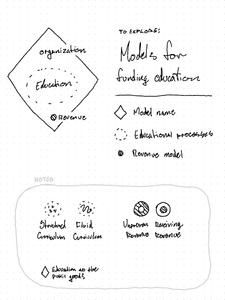 organization
Education
Revenue
TO EXPLORE:
Models for
funding education
Model name
Educational processes
Revenue model
NOTES
Structured
Curriculum
Fluid
Curriculum
Revenue
Receiving
Revenue
Education as the
public goods